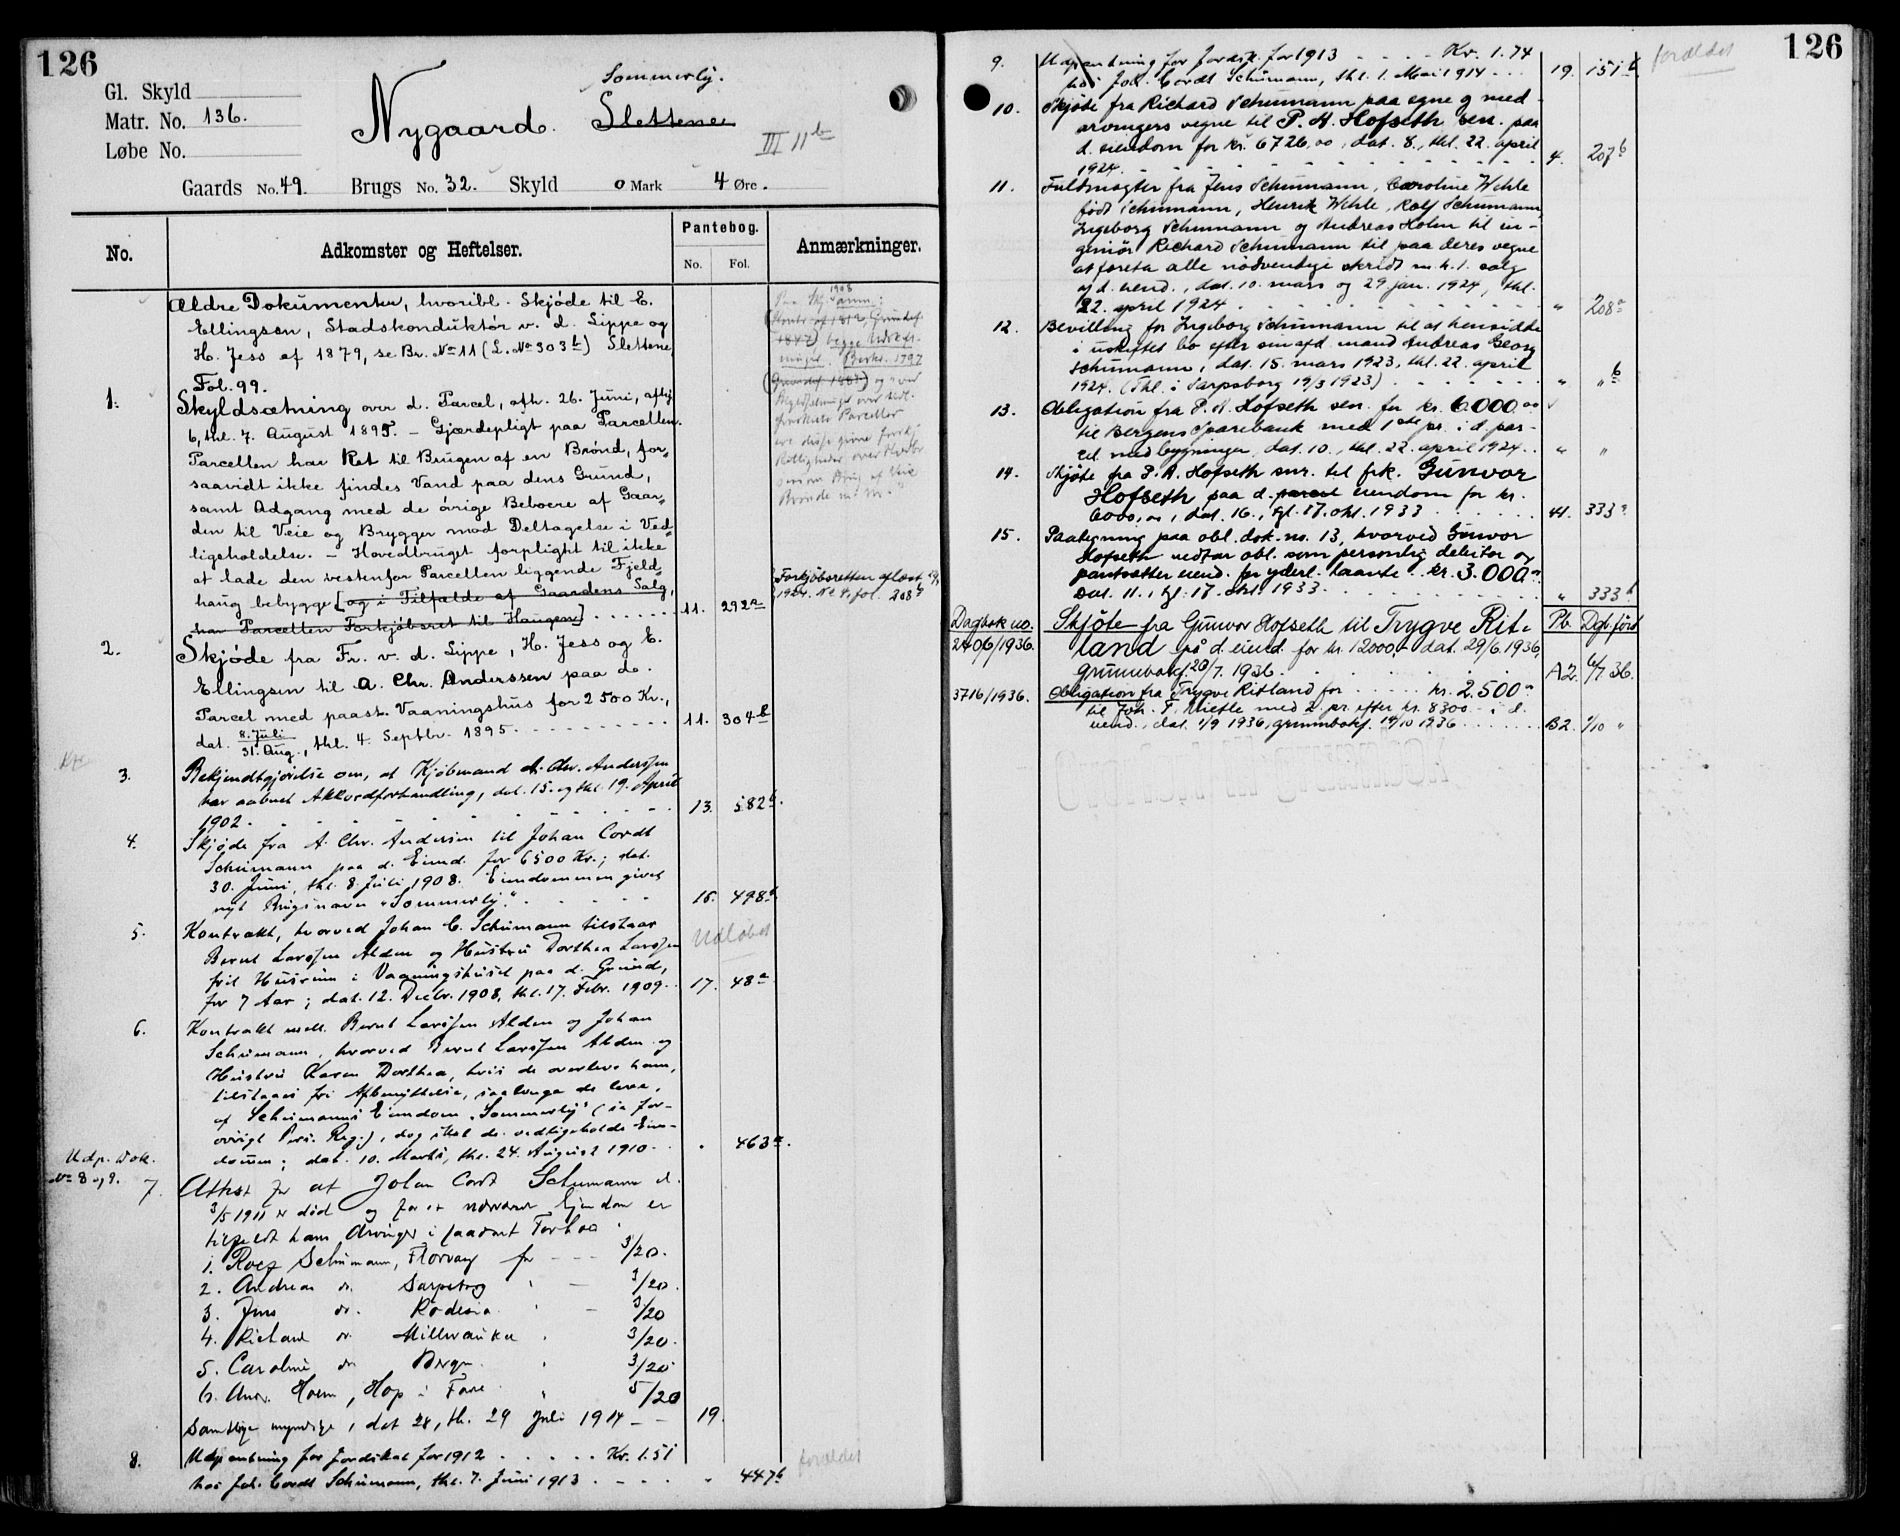 126
Gl. Skyld
Matr. No. 136.
Løbe No.
Nygaard. Sommerly.
Slettene
III 11 b
Gaards No. 49. Brugs No. 32. Skyld 0 Mark 4 Øre.
No. Adkomster og Heftelser. Pantebog. No. Fol. Anmærkninger.
Ældre Dokumenter, hvoribl. Skjøde til E.
Ellingsen, Stadskonduktør v. d. Lippe og
H. Jess af 1879, se Br. No 11 (L. No 303 b) Slettene
Fol. 99.
1. Skyldsætning over d. Parcel, afh. 26. Juni, afhj.
6, thl. 7. August 1895. – Gjærdepligt paa Parcellen.
Parcellen har Ret til Brugen af en Brønd, for-
saavidt ikke findes Vand paa dens Grund,
samt Adgang med de øvrige Beboere af Gaar-
den til Veie og Brygger mod Deltagelse i Ved-
ligeholdelse. – Hovedbruget forpligtet til ikke
at lade den vestenfor Parcellen liggende Fjeld-
haug bebygge [og i Tilfælde af Gaardens Salg,
har Parcellen Forkjøbsret til Haugen] 11. 292 a
Forkjøbsretten aflæst 29/4
1924. No 4, fol. 208 b
2. Skjøde fra Fr. v. d. Lippe, H. Jess og E.
Ellingsen til A. Chr. Anderssen paa do.
Parcel med paast. Vaaningshus for 2500 Kr.,
dat. 8. Juli / 31. Aug., thl. 4. Septbr. 1895. 11. 304 b
3. Bekjendtgjørelse om, at Kjøbmand A. Chr. Anderssen
har aabnet Akkordforhandling, dat. 15. og thl. 19. April
1902. 13. 582 b.
4. Skjøde fra A. Chr. Andersen til Johan Cordt
Schumann paa d. Eiend. for 6500 Kr.; dat.
30. Juni, thl. 8. Juli 1908. Eiendommen givet
nyt Brugsnavn "Sommerly." 16. 498 b
5. Kontrakt, hvorved Johan C. Schumann tilstaar
Bernt Larssen Alden og Hustru Dorthea Larssen
frit Husrum i Vaaningshuset paa d. Grund,
for 7 Aar; dat. 12. Decbr. 1908, thl. 17. Febr. 1909. 17. 48 a
Udløbet
6. Kontrakt mell. Bernt Larssen Alden og Johan
Schumann, hvorved Bernt Larssen Alden og
Hustru Karen Dorthea, hvis de overleve ham,
tilstaaes fri Afbenyttelse, saalænge de leve,
af Schumanns Eiendom "Sommerly" (se for-
øvrigt Pers. Reg.), dog skal de vedligeholde Eien-
dommen; dat. 10. Marts, thl. 24. August 1910. " 463 a.
Udp. Dok.
No 8 og 9.
7. Attest for at Johan Cordt Schumann d.
3/5 1911 er død og for at nærværende Ejendom er
tilfaldt hans Arvinger i saadant Forhold:
1. Rolf Schumann, Florvaag for 3/20.
2. Andreas do. Sarpsborg " 3/20.
3. Jens do. Rodesia " 3/20
4. Richard do. Millwaukee " 3/20.
5. Caroline do. Bergen " 3/20
6. Andr. Holm, Hop i Fane " 5/20
samtlige myndige, dat 28, th. 29 Juli 1914 19.
8. Udpantning for Jordskat for 1912 Kr. 1.51
hos Joh. Cordt Schumann, thl. 7. Juni 1913 " 447 b
forældet
126
9. Udpantning for Jordsk. for 1913 Kr. 1.74
hos Joh. Cordt Schumann, thl. 1. Mai 1914 19. 151 b
forældet
10. Skjøte fra Richard Schumann paa egne og med-
arvingers vegne til P. A. Hofseth sen. paa
d. eiendom for kr. 6726,00, dat. 8., thl. 22. april
1924. 4. 207 b
11. Fuldmagter fra Jens Schumann, Caroline Wehle
født Schumann, Henrik Wehle, Rolf Schumann,
Ingeborg Schumann og Andreas Holm til in-
geniør Richard Schumann til paa deres vegne
at foreta alle nødvendige skridt m. h. t. salg
af d. eiend., dat. 10. mars og 29. jan. 1924, thl.
22. april 1924 " 208 a
12. Bevilling for Ingeborg Schumann til at hensidde
i uskiftet bo efter sin afd. mand Andreas Georg
Schumann, dat. 15. mars 1923, thl. 22. april
1924. (Thl. i Sarpsborg 19/3 1923) " " b
13. Obligation fra P. A. Hofseth sen. for kr. 6.000.00
til Bergens Sparebank med 1ste pr. i d. par-
cel med bygninger, dat. 10., thl. 22. april 1924. " "
14. Skjøte fra P. A. Hofseth snr. til frk. Gunvor
Hofseth paa d. parcel eiendom for kr.
6000,00, dat. 16., tgl. 17. okt. 1933 41. 333 a
15. Paategning paa obl. dok. no. 13, hvorved Gunvor
Hofseth vedtar obl. som personlig debitor og
pantsetter eiend. for yderl. laante kr. 3.000.00
Dat. 11., tgl. 17. okt. 1933. " 333 b
Dagbok no. Pb. Dgb. ført
2406/1936. Skjøte fra Gunvor Hofseth til Trygve Rit-
land på d. eiend. for kr. 12000,- dat. 29/6. 1936,
Grunnbokf. 20/7. 1936. A2. 6/7 36.
3716/1936. Obligation fra Trygve Ritland for kr. 2.500.00
med 2. pr. efter kr. 8300.- i d.
eiend., dat. 1/9 1936, grunnbokf. 14/10 1936 B2. 1/10 "